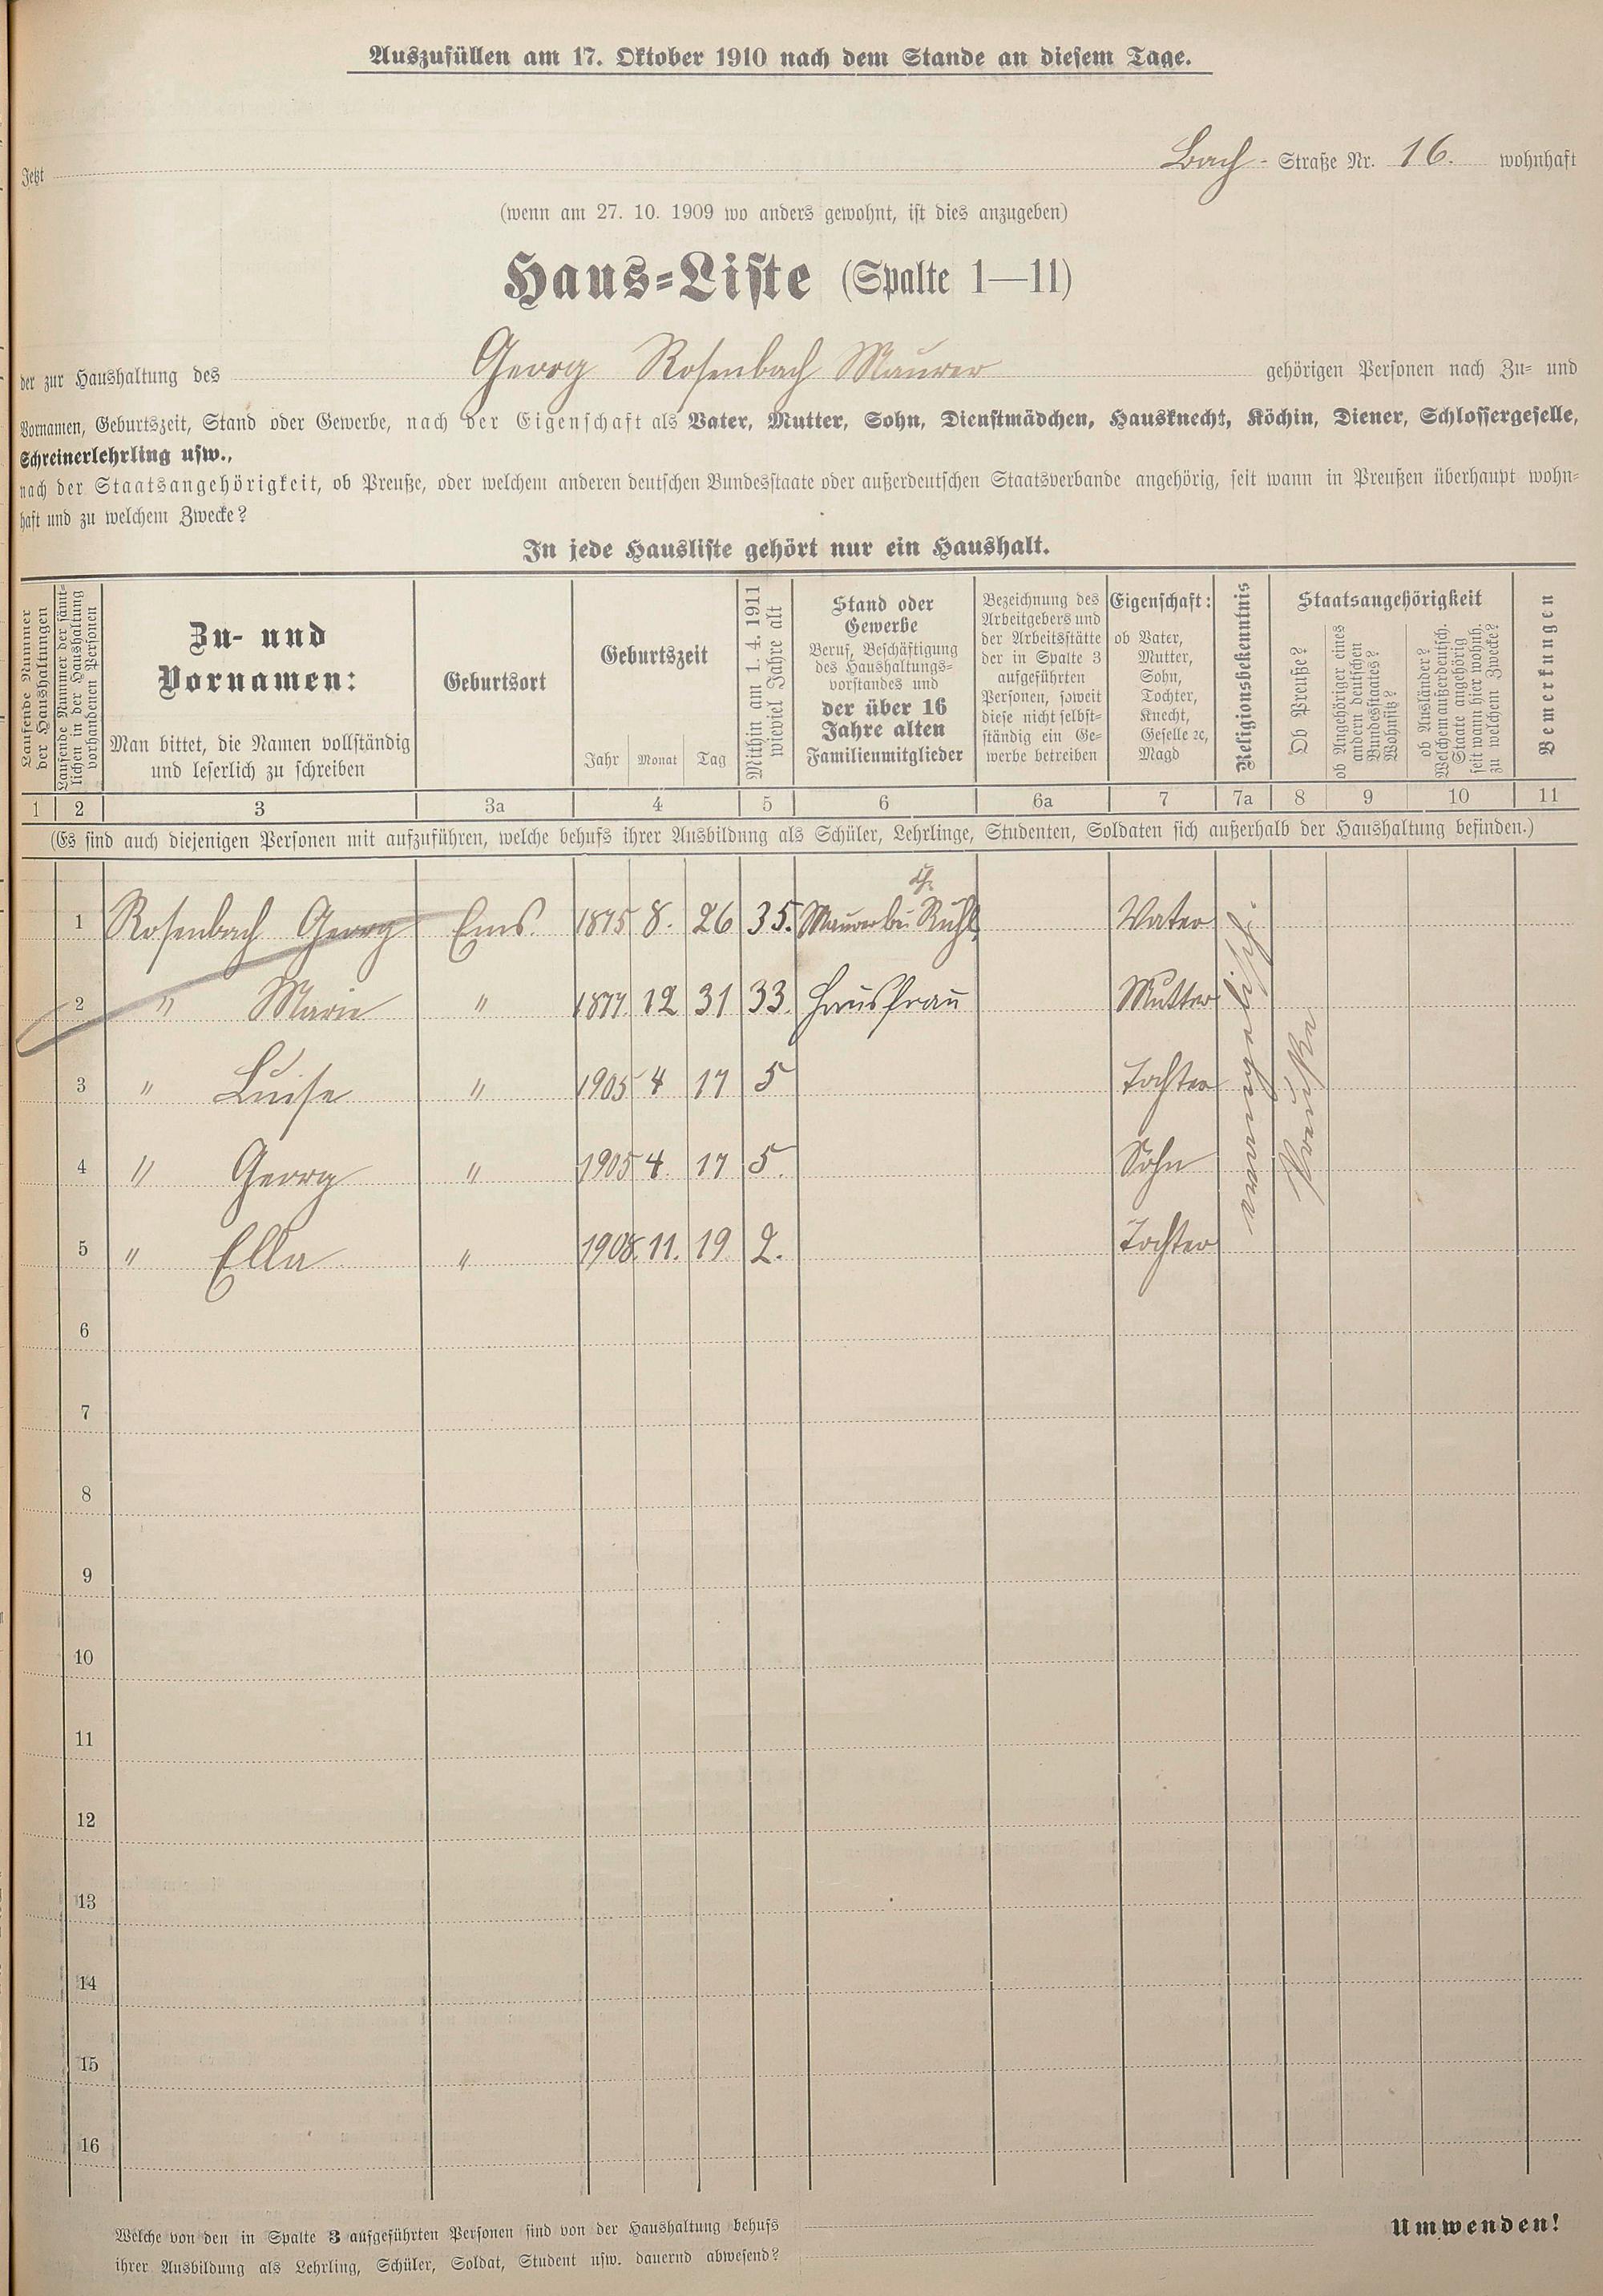 Auszufüllen am 17. Oktober 1910 nach dem Stande an diesem Tage.
Jetzt Bach - Straße Nr. 16. wohnhaft
(wenn am 27. 10. 1909 wo anders gewohnt, ist dies anzugeben)
Haus-Liste (Spalte 1—11)
der zur Haushaltung des Georg Rosenbach Maurer gehörigen Personen nach Zu- und
Vornamen, Geburtszeit, Stand oder Gewerbe, nach der Eigenschaft als Vater, Mutter, Sohn, Dienstmädchen, Hausknecht, Köchin, Diener, Schlossergeselle,
Schreinerlehrling usw.,
nach der Staatsangehörigkeit, ob Preuße, oder welchem anderen deutschen Bundesstaate oder außerdeutschen Staatsverbande angehörig, seit wann in Preußen überhaupt wohn-
haft und zu welchem Zwecke?
In jede Hausliste gehört nur ein Haushalt.
Laufende Nummer
der Haushaltungen
Laufende Nummer der sämt-
lichen in der Haushaltung
vorhandenen Personen
Zu- und
Vornamen:
Man bittet, die Namen vollständig
und leserlich zu schreiben
Geburtsort
Geburtszeit
Jahr Monat Tag
Mithin am 1. 4. 1911
wieviel Jahre alt
Stand oder
Gewerbe
Beruf, Beschäftigung
des Haushaltungs-
vorstandes und
der über 16
Jahre alten
Familienmitglieder
Bezeichnung des
Arbeitgebers und
der Arbeitsstätte
der in Spalte 3
aufgeführten
Personen, soweit
diese nicht selbst-
ständig ein Ge-
werbe betreiben
Eigenschaft:
ob Vater,
Mutter,
Sohn,
Tochter,
Knecht,
Geselle ꝛc,
Magd
Religionsbekenntnis
Staatsangehörigkeit
Ob Preuße?
ob Angehöriger eines
andern deutschen
Bundesstaates?
Wohnsitz?
ob Ausländer?
Welchem außerdeutsch.
Staate angehörig
seit wann hier wohnh.
zu welchem Zwecke?
Bemerkungen
1 2 3 3a 4 5 6 6a 7 7a 8 9 10 11
(Es sind auch diejenigen Personen mit aufzuführen, welche behufs ihrer Ausbildung als Schüler, Lehrlinge, Studenten, Soldaten sich außerhalb der Haushaltung befinden.)
1 Rosenbach Georg Ems. 1875 8. 26 35. Maurer bei Rühl Vater
2 " Marie " 1877 12 31 33. Hausfrau Mutter
3 " Luise " 1905 4 17 5 Tochter
4 " Georg " 1905 4. 17 5. Sohn
5 " Ella " 1908. 11. 19. 2. Tochter
evangelisch.
Preuße
6
7
8
9
10
11
12
13
14
15
16
Welche von den in Spalte 3 aufgeführten Personen sind von der Haushaltung behufs
ihrer Ausbildung als Lehrling, Schüler, Soldat, Student usw. dauernd abwesend?
Umwenden!